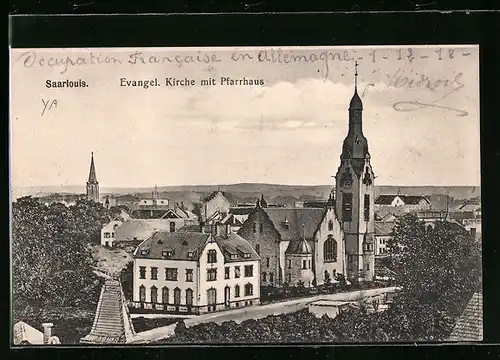 Occupation Française en Allemagne 1-12-18-
Saarlouis. Evangel. Kirche mit Pfarrhaus